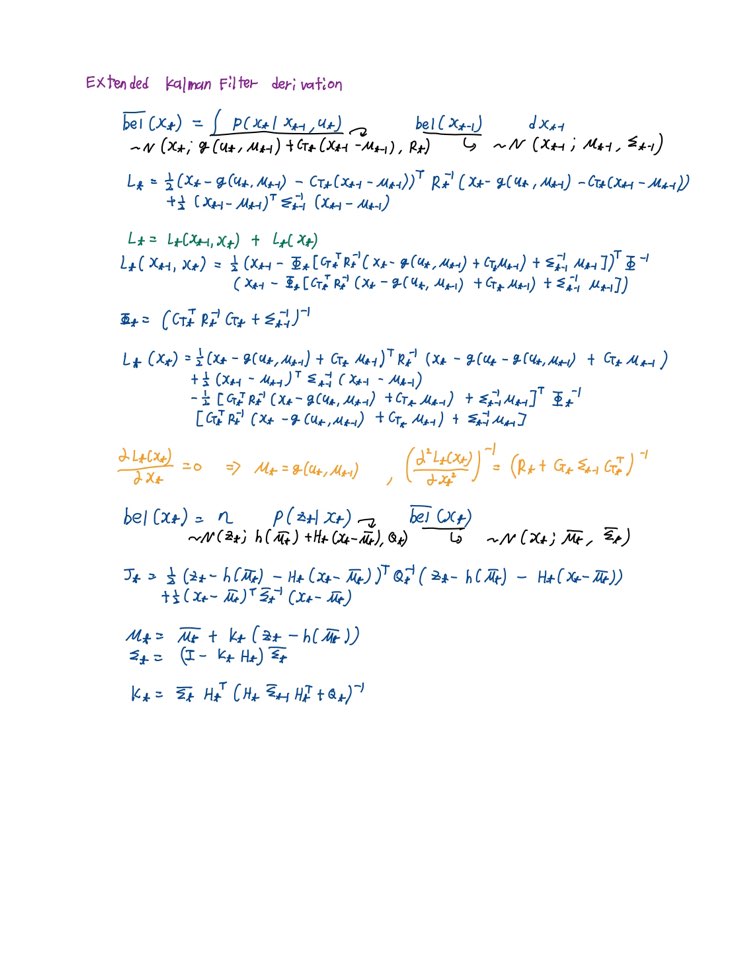 Extended Kalman Filter derivation
b̅e̅l̅(xₜ) = ∫ p(xₜ | xₜ₋₁, uₜ) bel(xₜ₋₁) dxₜ₋₁
~N(xₜ; g(uₜ, μₜ₋₁) + Gₜ(xₜ₋₁ − μₜ₋₁), Rₜ) ~N(xₜ₋₁; μₜ₋₁, Σₜ₋₁)
Lₜ = ½(xₜ − g(uₜ, μₜ₋₁) − Gₜ(xₜ₋₁ − μₜ₋₁))ᵀ Rₜ⁻¹ (xₜ − g(uₜ, μₜ₋₁) − Gₜ(xₜ₋₁ − μₜ₋₁))
+½ (xₜ₋₁ − μₜ₋₁)ᵀ Σₜ₋₁⁻¹ (xₜ₋₁ − μₜ₋₁)
Lₜ = Lₜ(xₜ₋₁, xₜ) + Lₜ(xₜ)
Lₜ(xₜ₋₁, xₜ) = ½(xₜ₋₁ − Φₜ[GₜᵀRₜ⁻¹(xₜ − g(uₜ, μₜ₋₁) + Gₜμₜ₋₁) + Σₜ₋₁⁻¹ μₜ₋₁])ᵀ Φ⁻¹
(xₜ₋₁ − Φₜ[GₜᵀRₜ⁻¹(xₜ − g(uₜ, μₜ₋₁) + Gₜ μₜ₋₁) + Σₜ₋₁⁻¹ μₜ₋₁])
Φₜ = (Gₜᵀ Rₜ⁻¹ Gₜ + Σₜ₋₁⁻¹)⁻¹
Lₜ(xₜ) = ½(xₜ − g(uₜ, μₜ₋₁) + Gₜ μₜ₋₁)ᵀ Rₜ⁻¹ (xₜ − g(uₜ − g(uₜ, μₜ₋₁) + Gₜ μₜ₋₁)
+½ (xₜ₋₁ − μₜ₋₁)ᵀ Σₜ₋₁⁻¹ (xₜ₋₁ − μₜ₋₁)
−½ [GₜᵀRₜ⁻¹ (xₜ − g(uₜ, μₜ₋₁) + Gₜ μₜ₋₁) + Σₜ₋₁⁻¹μₜ₋₁]ᵀ Φₜ⁻¹
[GₜᵀRₜ⁻¹ (xₜ − g(uₜ, μₜ₋₁) + Gₜ μₜ₋₁) + Σₜ₋₁⁻¹μₜ₋₁]
∂Lₜ(xₜ)/∂xₜ = 0 ⇒ μₜ = g(uₜ, μₜ₋₁) , (∂²Lₜ(xₜ)/∂xₜ²)⁻¹ = (Rₜ + Gₜ Σₜ₋₁ Gₜᵀ)⁻¹
bel(xₜ) = η p(zₜ | xₜ) b̅e̅l̅(xₜ)
~N(zₜ; h(μ̅ₜ) + Hₜ(xₜ − μ̅ₜ), Qₜ) ~N(xₜ; μ̅ₜ, Σ̅ₜ)
Jₜ = ½ (zₜ − h(μ̅ₜ) − Hₜ(xₜ − μ̅ₜ))ᵀ Qₜ⁻¹ (zₜ − h(μ̅ₜ) − Hₜ(xₜ − μ̅ₜ))
+½ (xₜ − μ̅ₜ)ᵀ Σ̅ₜ⁻¹ (xₜ − μ̅ₜ)
μₜ = μ̅ₜ + Kₜ(zₜ − h(μ̅ₜ))
Σₜ = (I − Kₜ Hₜ) Σ̅ₜ
Kₜ = Σ̅ₜ Hₜᵀ (Hₜ Σ̅ₜ₋₁ Hₜᵀ + Qₜ)⁻¹